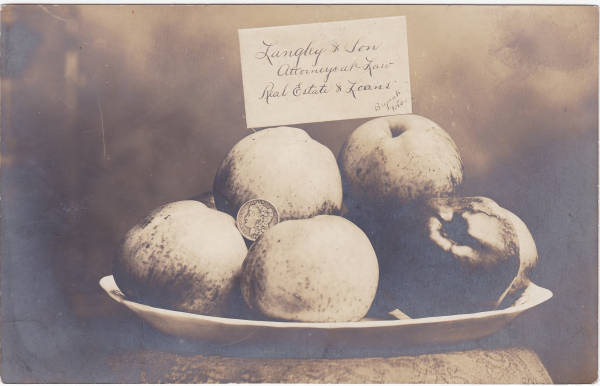 Langley & Son
Attorneys at Law
Real Estate & Loans